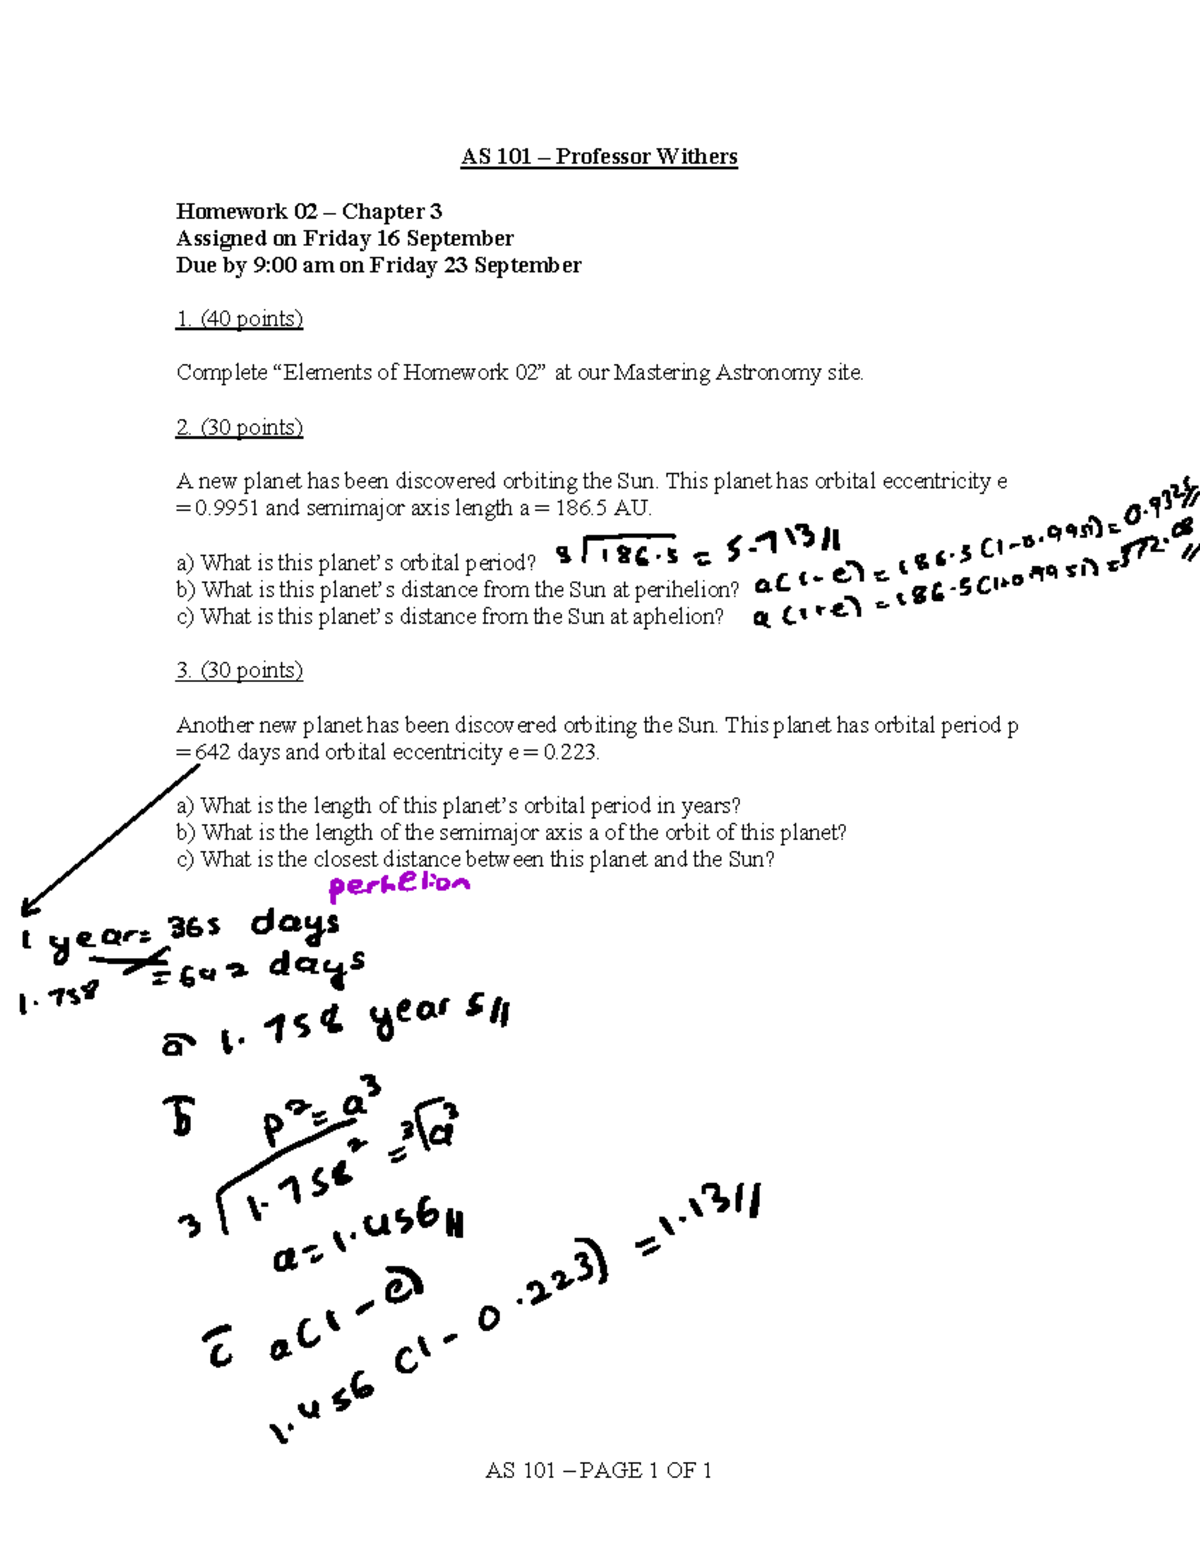 AS 101 – Professor Withers
Homework 02 – Chapter 3
Assigned on Friday 16 September
Due by 9:00 am on Friday 23 September
1. (40 points)
Complete “Elements of Homework 02” at our Mastering Astronomy site.
2. (30 points)
A new planet has been discovered orbiting the Sun. This planet has orbital eccentricity e
= 0.9951 and semimajor axis length a = 186.5 AU.
a) What is this planet’s orbital period? 3√186.5 = 5.713//
b) What is this planet’s distance from the Sun at perihelion? a(1-e) = 186.5(1-0.9951) = 0.9325//
c) What is this planet’s distance from the Sun at aphelion? a(1+e) = 186.5(1+0.9951) = 372.08//
3. (30 points)
Another new planet has been discovered orbiting the Sun. This planet has orbital period p
= 642 days and orbital eccentricity e = 0.223.
a) What is the length of this planet’s orbital period in years?
b) What is the length of the semimajor axis a of the orbit of this planet?
c) What is the closest distance between this planet and the Sun?
perhelion
1 year = 365 days
1.758 = 642 days
a 1.758 years//
b p² = a³
3√1.758² = 3√a³
a = 1.456//
c a(1-e)
1.456 (1-0.223) = 1.13//
AS 101 – PAGE 1 OF 1